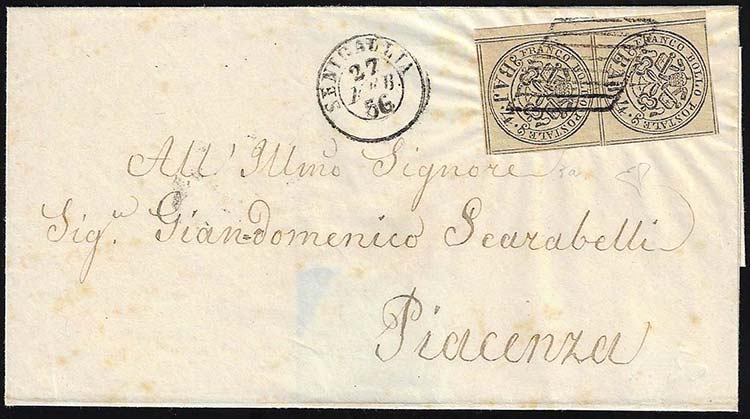 SENIGALLIA
27
FEB.
56
FRANCO BOLLO POSTALE
BAJ
FRANCO BOLLO POSTALE
BAJ
All' Illmo Signore
Sig.r Giandomenico Scarabelli
Piacenza